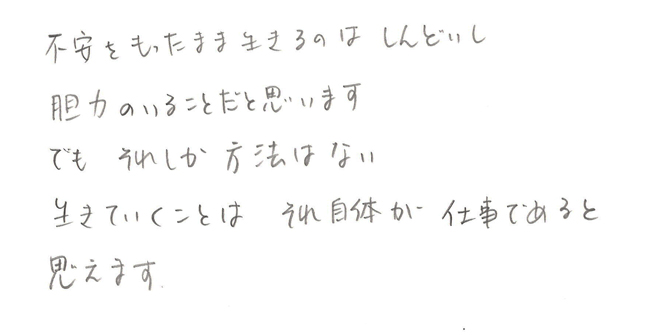 不安をもったまま生きるのは しんどいし
胆力のいることだと思います
でも それしか 方法はない
生きていくことは それ自体が 仕事であると
思えます.